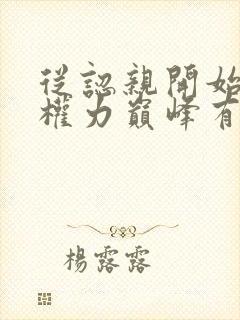 從認親開始
權力巔峰有
楊露露